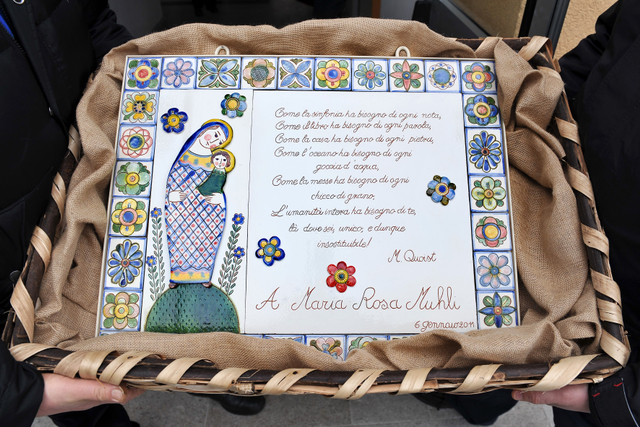 Come la sinfonia ha bisogno di ogni nota,
Come il libro ha bisogno di ogni parola,
Come la casa ha bisogno di ogni pietra,
Come l'oceano ha bisogno di ogni
goccia d'acqua,
Come la messe ha bisogno di ogni
chicco di grano,
L'umanità intera ha bisogno di te,
là dove sei, unico, e dunque
insostituibile!
M. Quoist
A Maria Rosa Muhli
6 gennaio 2011